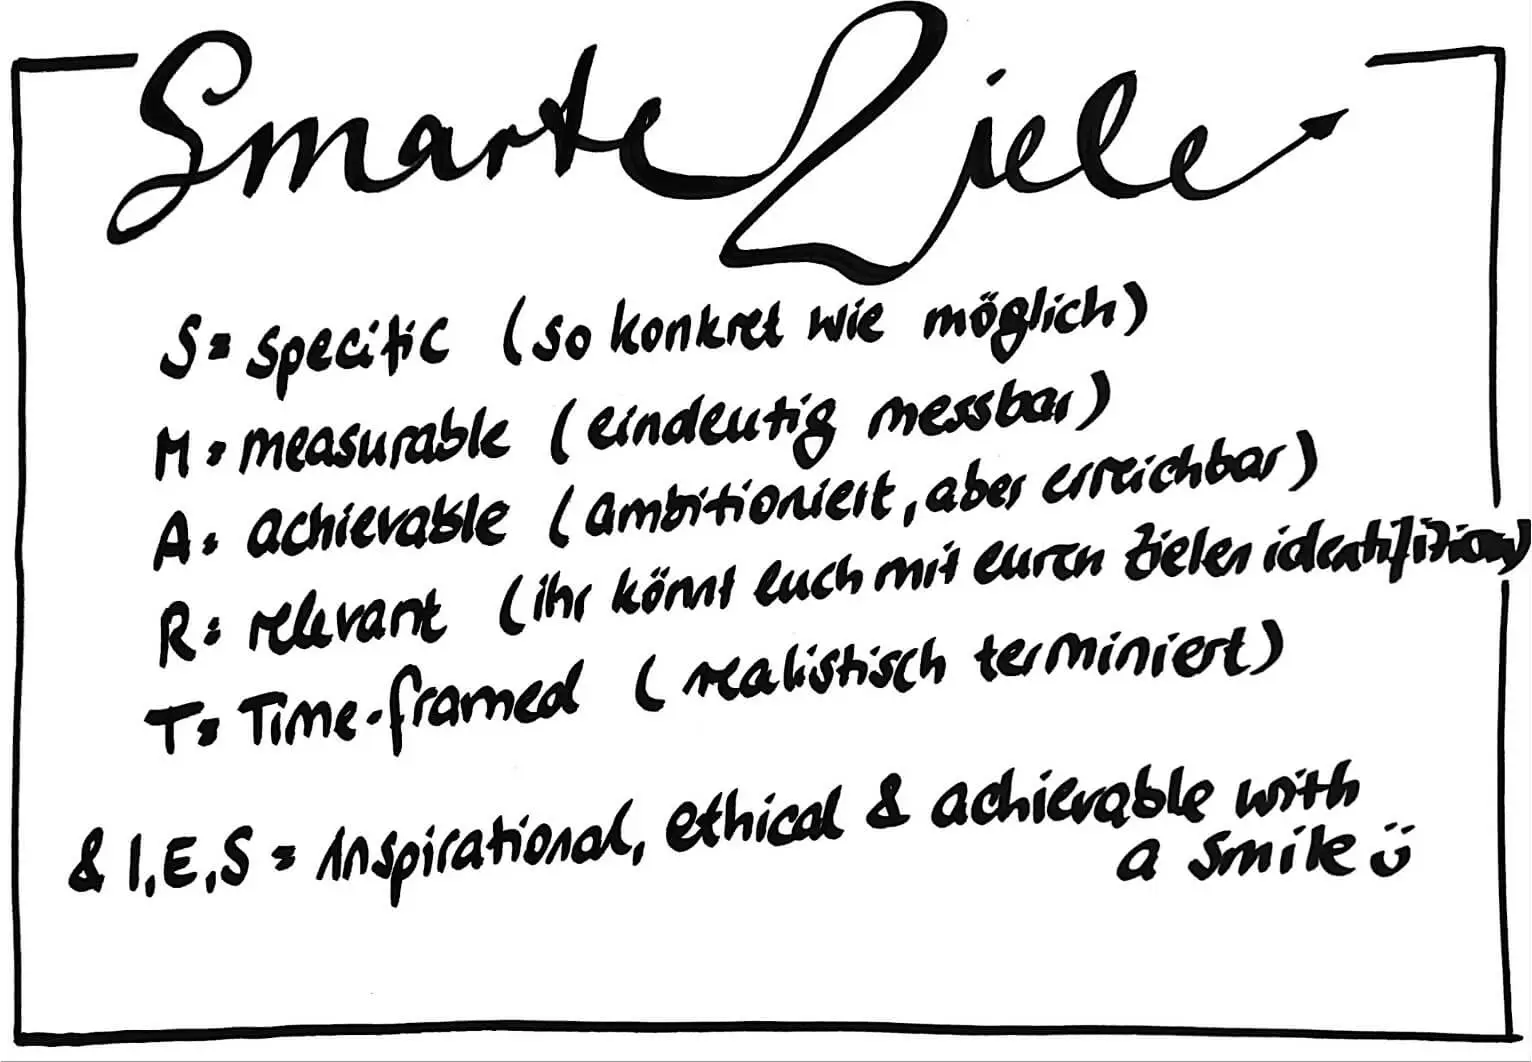 Smarte Ziele
S = specific (so konkret wie möglich)
M = measurable (eindeutig messbar)
A = achievable (ambitioniert, aber erreichbar)
R = relevant (ihr könnt euch mit euren Zielen identifizieren)
T = Time-framed (realistisch terminiert)
& I, E, S = Inspirational, ethical & achievable with
a smile ☺